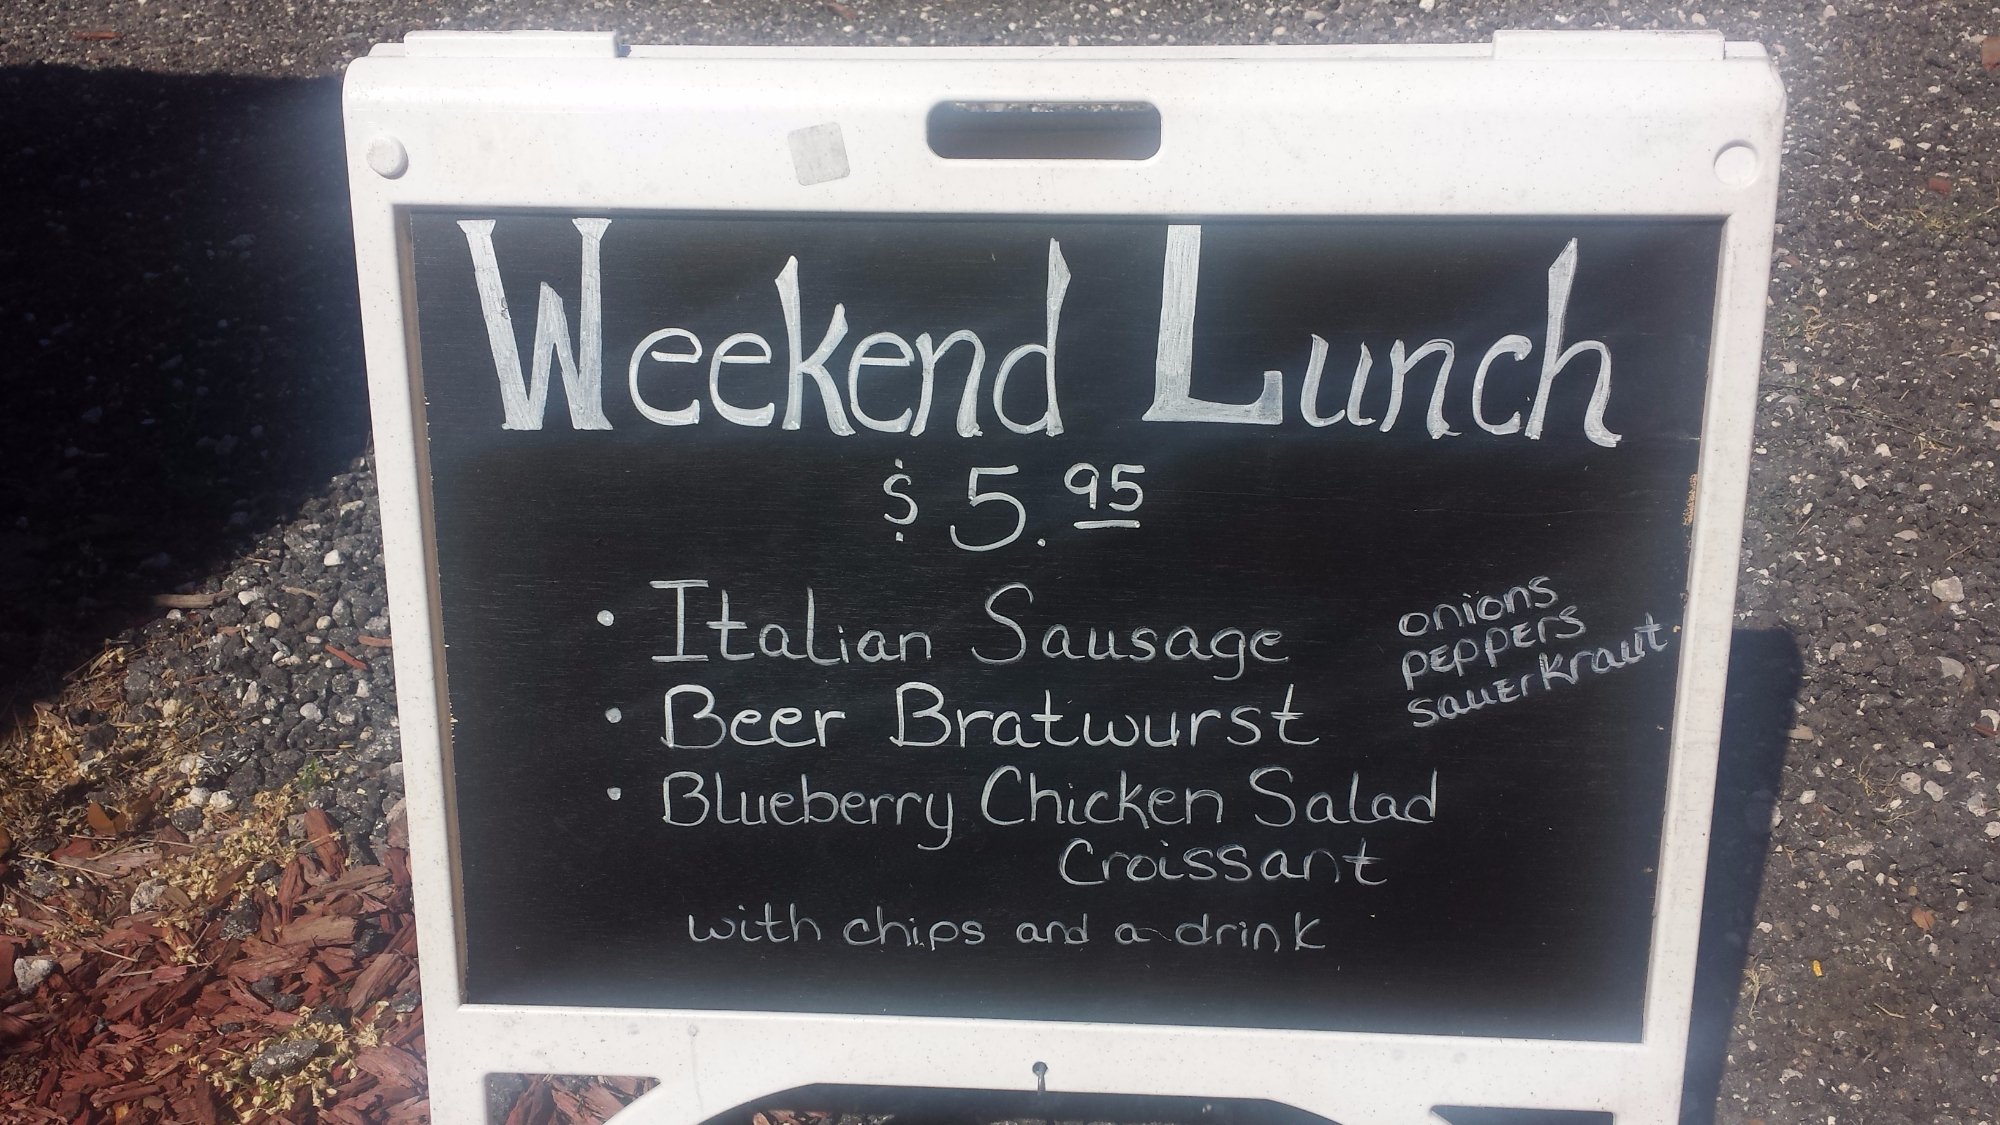 Weekend Lunch
$5.95
• Italian Sausage
onions
peppers
sauerkraut
• Beer Bratwurst
• Blueberry Chicken Salad
Croissant
with chips and a drink